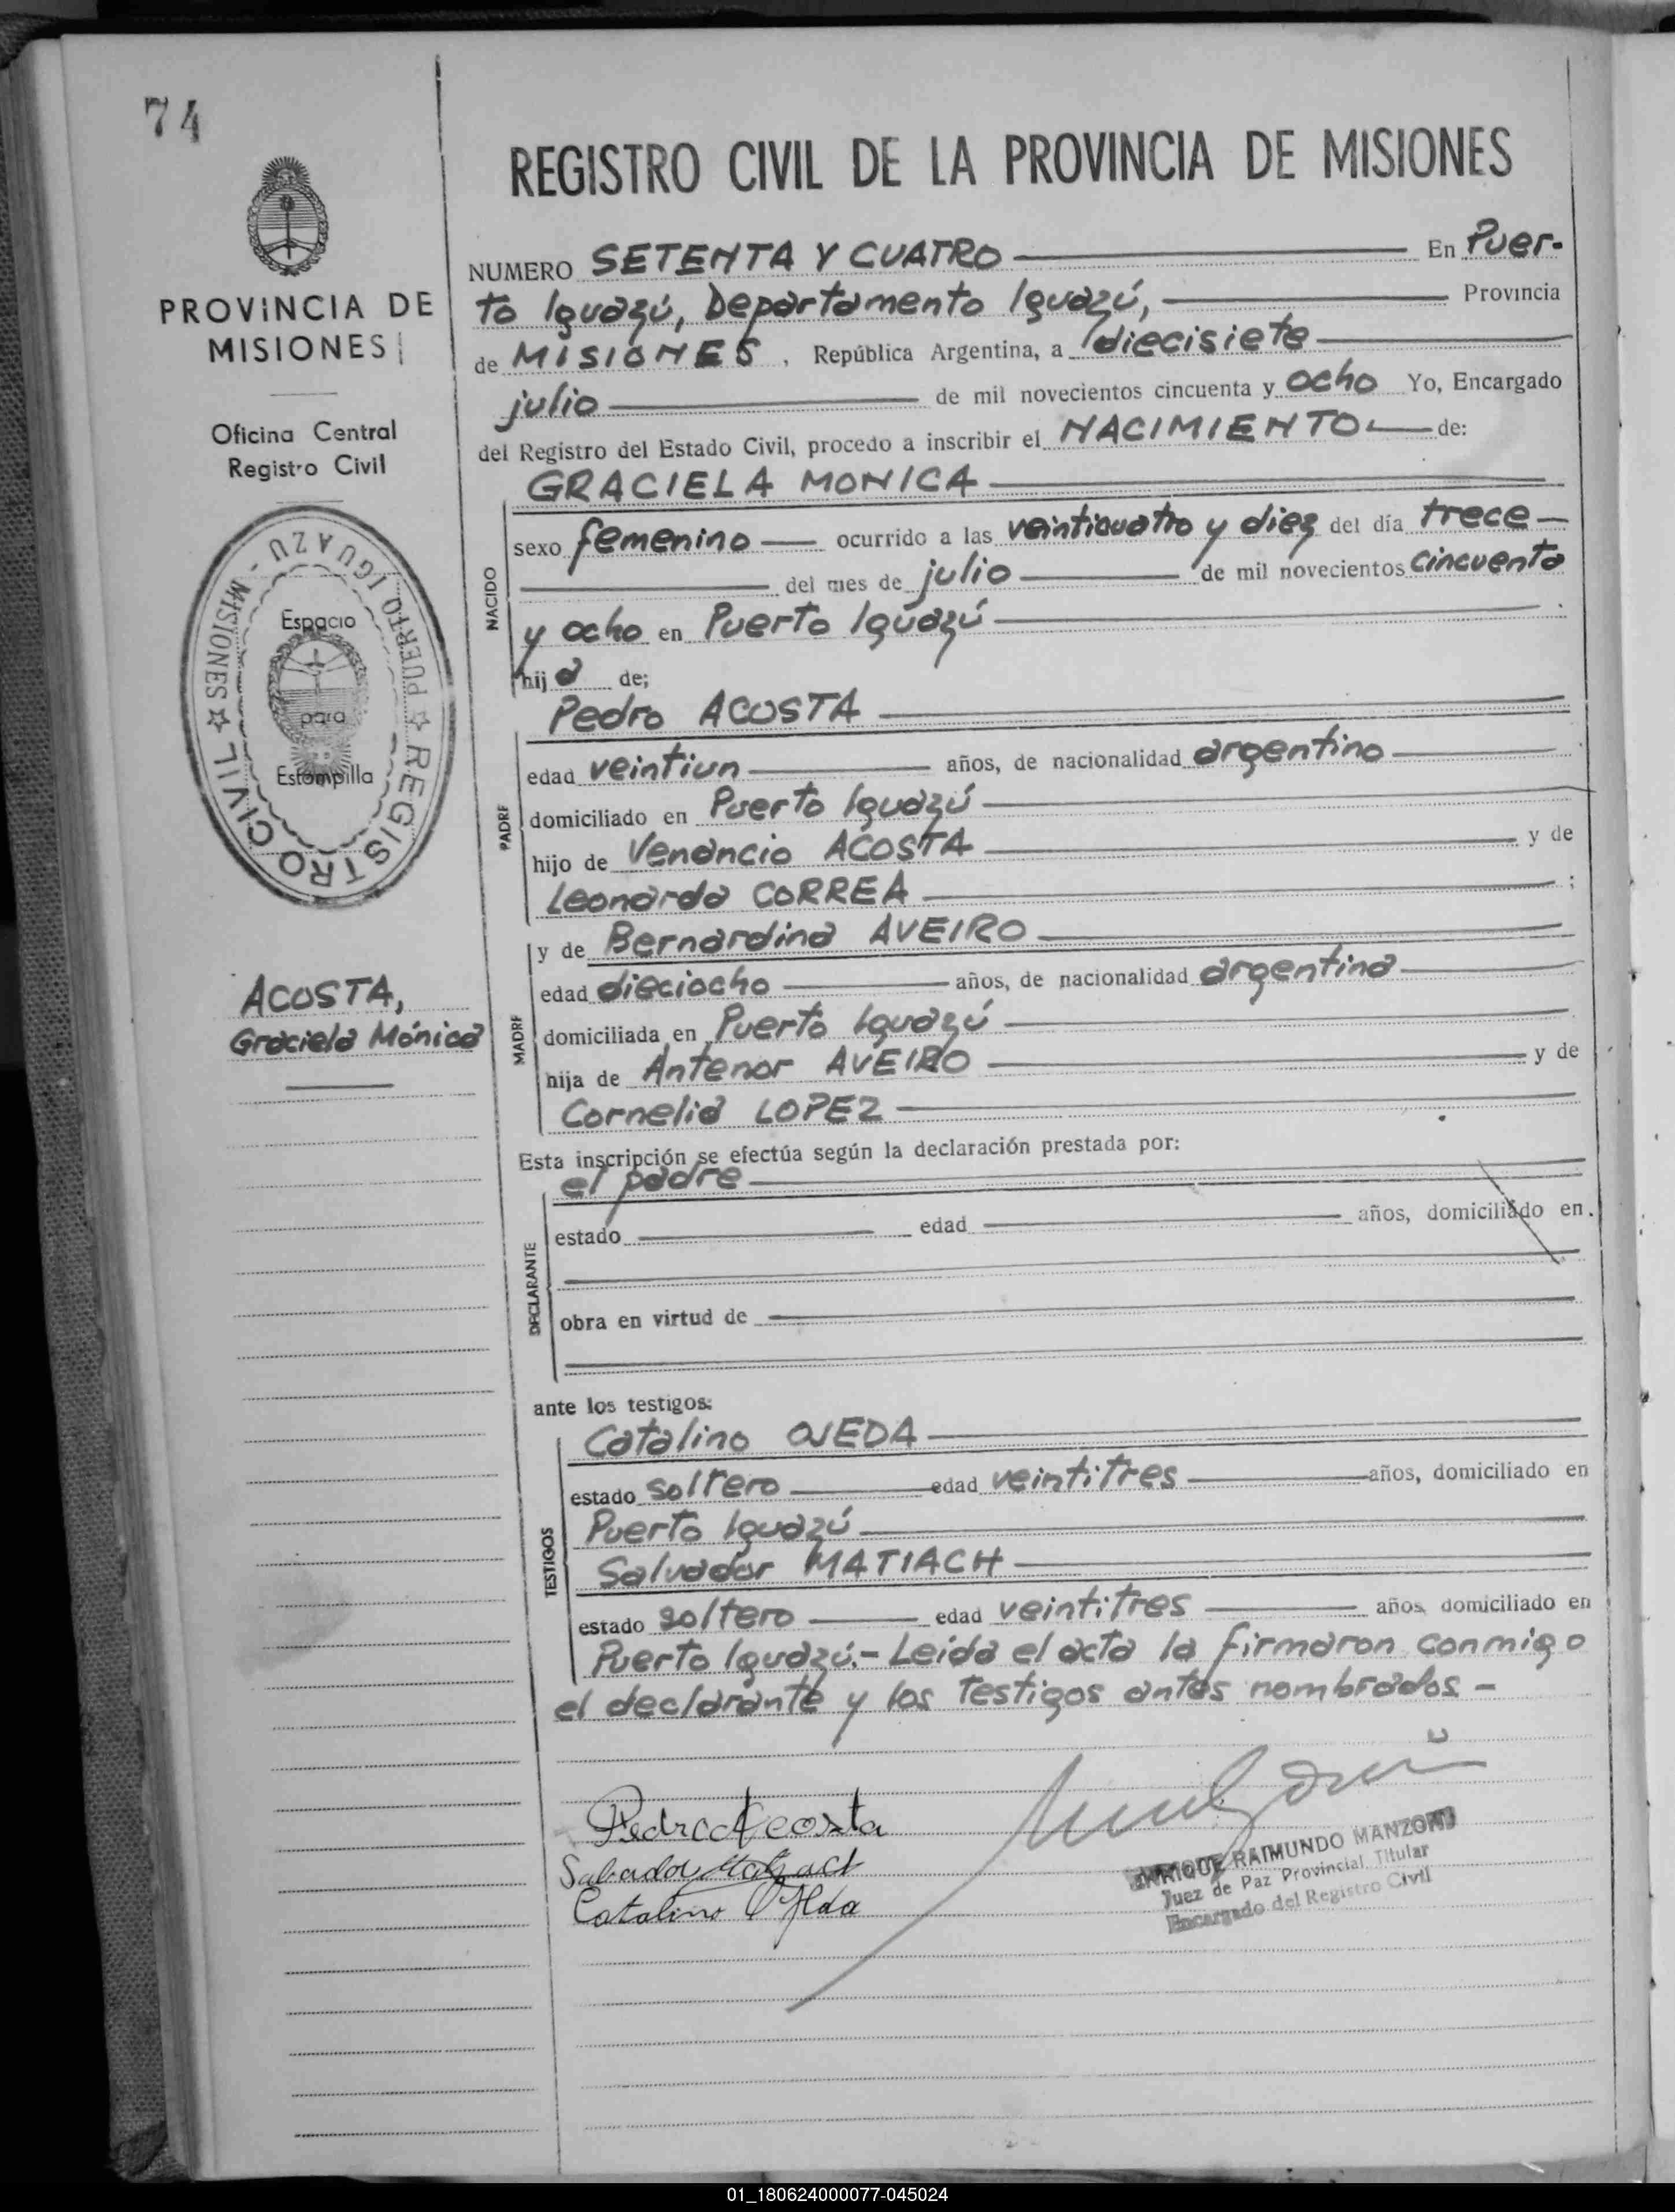 74
PROVINCIA DE
MISIONES
Oficina Central
Registro Civil
REGISTRO CIVIL ☆ PUERTO IGUAZU - MISIONES ☆
Espacio
para
Estampilla
ACOSTA,
Graciela Mónica
REGISTRO CIVIL DE LA PROVINCIA DE MISIONES
NUMERO SETENTA Y CUATRO En Puer-
to Iguazú, Departamento Iguazú, Provincia
de MISIONES, República Argentina, a diecisiete
julio de mil novecientos cincuenta y ocho Yo, Encargado
del Registro del Estado Civil, procedo a inscribir el NACIMIENTO de:
NACIDO
GRACIELA MONICA
sexo femenino ocurrido a las veinticuatro y diez del día trece
del mes de julio de mil novecientos cincuenta
y ocho en Puerto Iguazú
hija de;
PADRE
Pedro ACOSTA
edad veintiun años, de nacionalidad argentino
domiciliado en Puerto Iguazú
hijo de Venancio ACOSTA y de
Leonarda CORREA ;
MADRE
y de Bernardina AVEIRO
edad dieciocho años, de nacionalidad argentina
domiciliada en Puerto Iguazú
hija de Antenor AVEIRO y de
Cornelia LOPEZ
Esta inscripción se efectúa según la declaración prestada por:
DECLARANTE
el padre
estado edad años, domiciliado en
obra en virtud de
ante los testigos:
TESTIGOS
Catalino OJEDA
estado soltero edad veintitres años, domiciliado en
Puerto Iguazú
Salvador MATIACH
estado soltero edad veintitres años, domiciliado en
Puerto Iguazú.- Leida el acta la firmaron conmigo
el declarante y los testigos antes nombrados.-
Pedro Acosta
Catalino
ENRIQUE RAIMUNDO MANZONI
Juez de Paz Provincial Titular
Encargado del Registro Civil
01_180624000077-045024